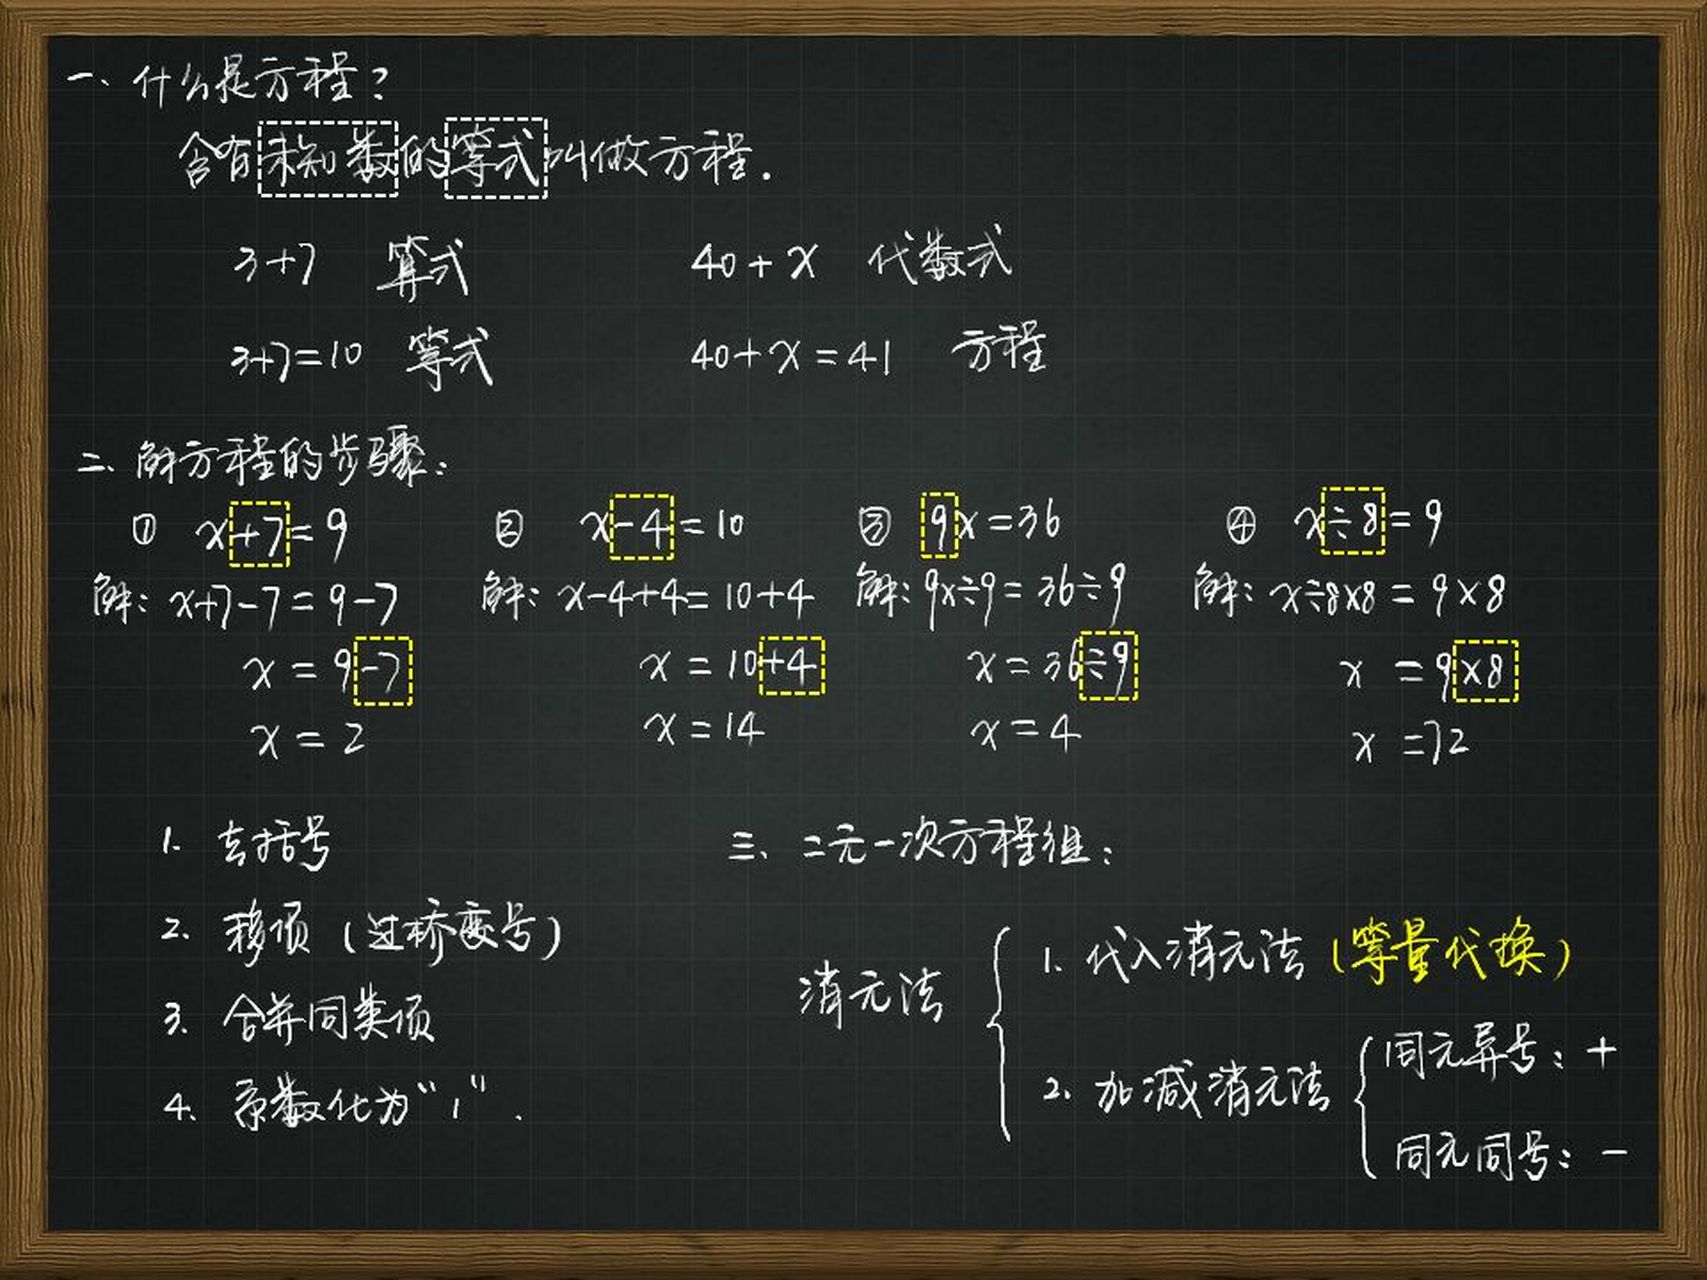 一、什么是方程？
含有未知数的等式叫做方程．
3+7 算式 40+x 代数式
3+7=10 等式 40+x=41 方程
二、解方程的步骤：
① x+7=9 ② x-4=10 ③ 9x=36 ④ x÷8=9
解：x+7-7=9-7 解：x-4+4=10+4 解：9x÷9=36÷9 解：x÷8×8=9×8
x=9-7 x=10+4 x=36÷9 x=9×8
x=2 x=14 x=4 x=72
1. 去括号
2. 移项（过桥变号）
3. 合并同类项
4. 系数化为“1”．
三、二元一次方程组：
消元法
1. 代入消元法（等量代换）
2. 加减消元法
同元异号：+
同元同号：-